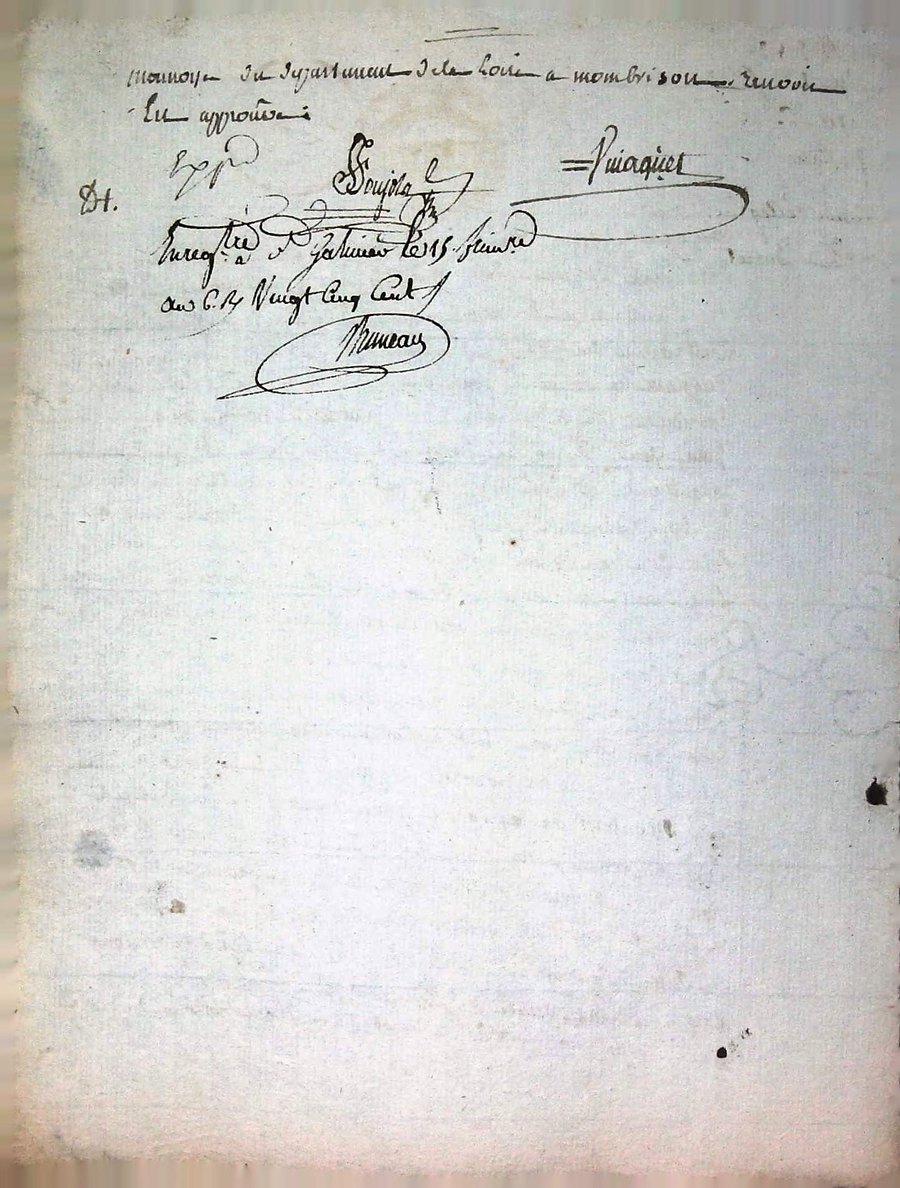 monnoye du departement dela Loire a mombrison renvoie
Lu approuvé
Exp.d Soujola Puiaquet
D1.
Enregtré à St Galmier le 15 frimre
an 6. R Vingt Cinq Cent
Bruneau